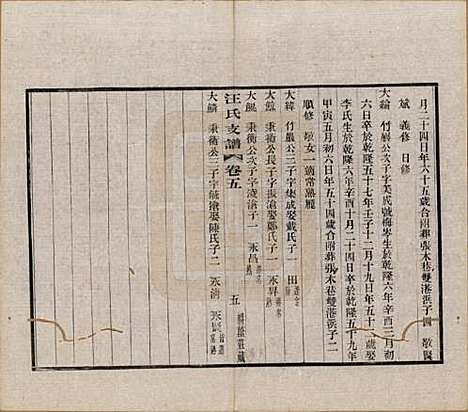 月二十四日年六十五歲合兩葬張木巷雙港浜子四 敬賢
斌 義修 日修
大綸 竹巖公次子字美成號梅岑生於乾隆六年辛酉三月初
六日卒於乾隆五十七年壬子十二月十九日年五十二歲娶
李氏生於乾隆六年辛酉十月二十四日卒於乾隆五十九年
甲寅五月初六日年五十四歲合葬張木巷雙港浜子二
順修 敬 女一適常熟龐
大緯 竹巖公三子字集成娶戴氏子二 田
大鯤 秉衡公長子字振滄娶鄭氏子一 永昇
大鯤 秉衡公次子字凌滄子一 永昌
汪氏支譜 卷五 五
大鱗 秉衡公三子字毓滄娶陳氏子二 永清 永